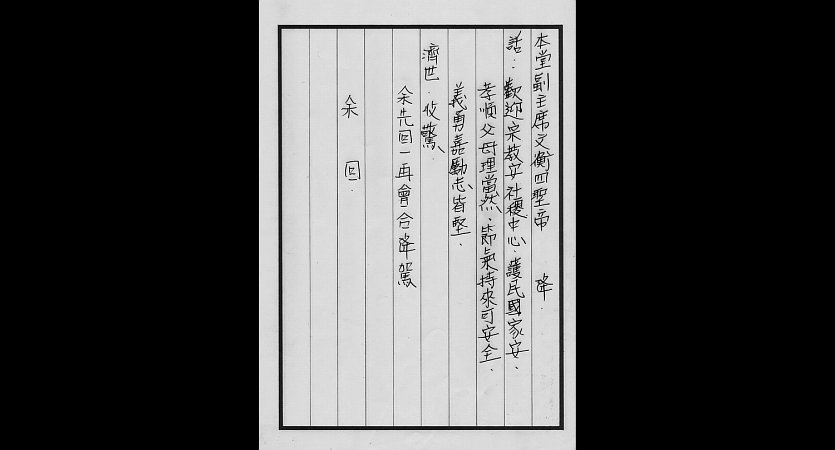 本堂副主席文衡四聖帝　降．
話：歡迎宗教安社稷中心．護民國家安．
孝順父母理當然．節氣持來可安全．
義勇嘉勵志皆堅．
濟世．伩驚．
余先回一再會合降駕
余　回．